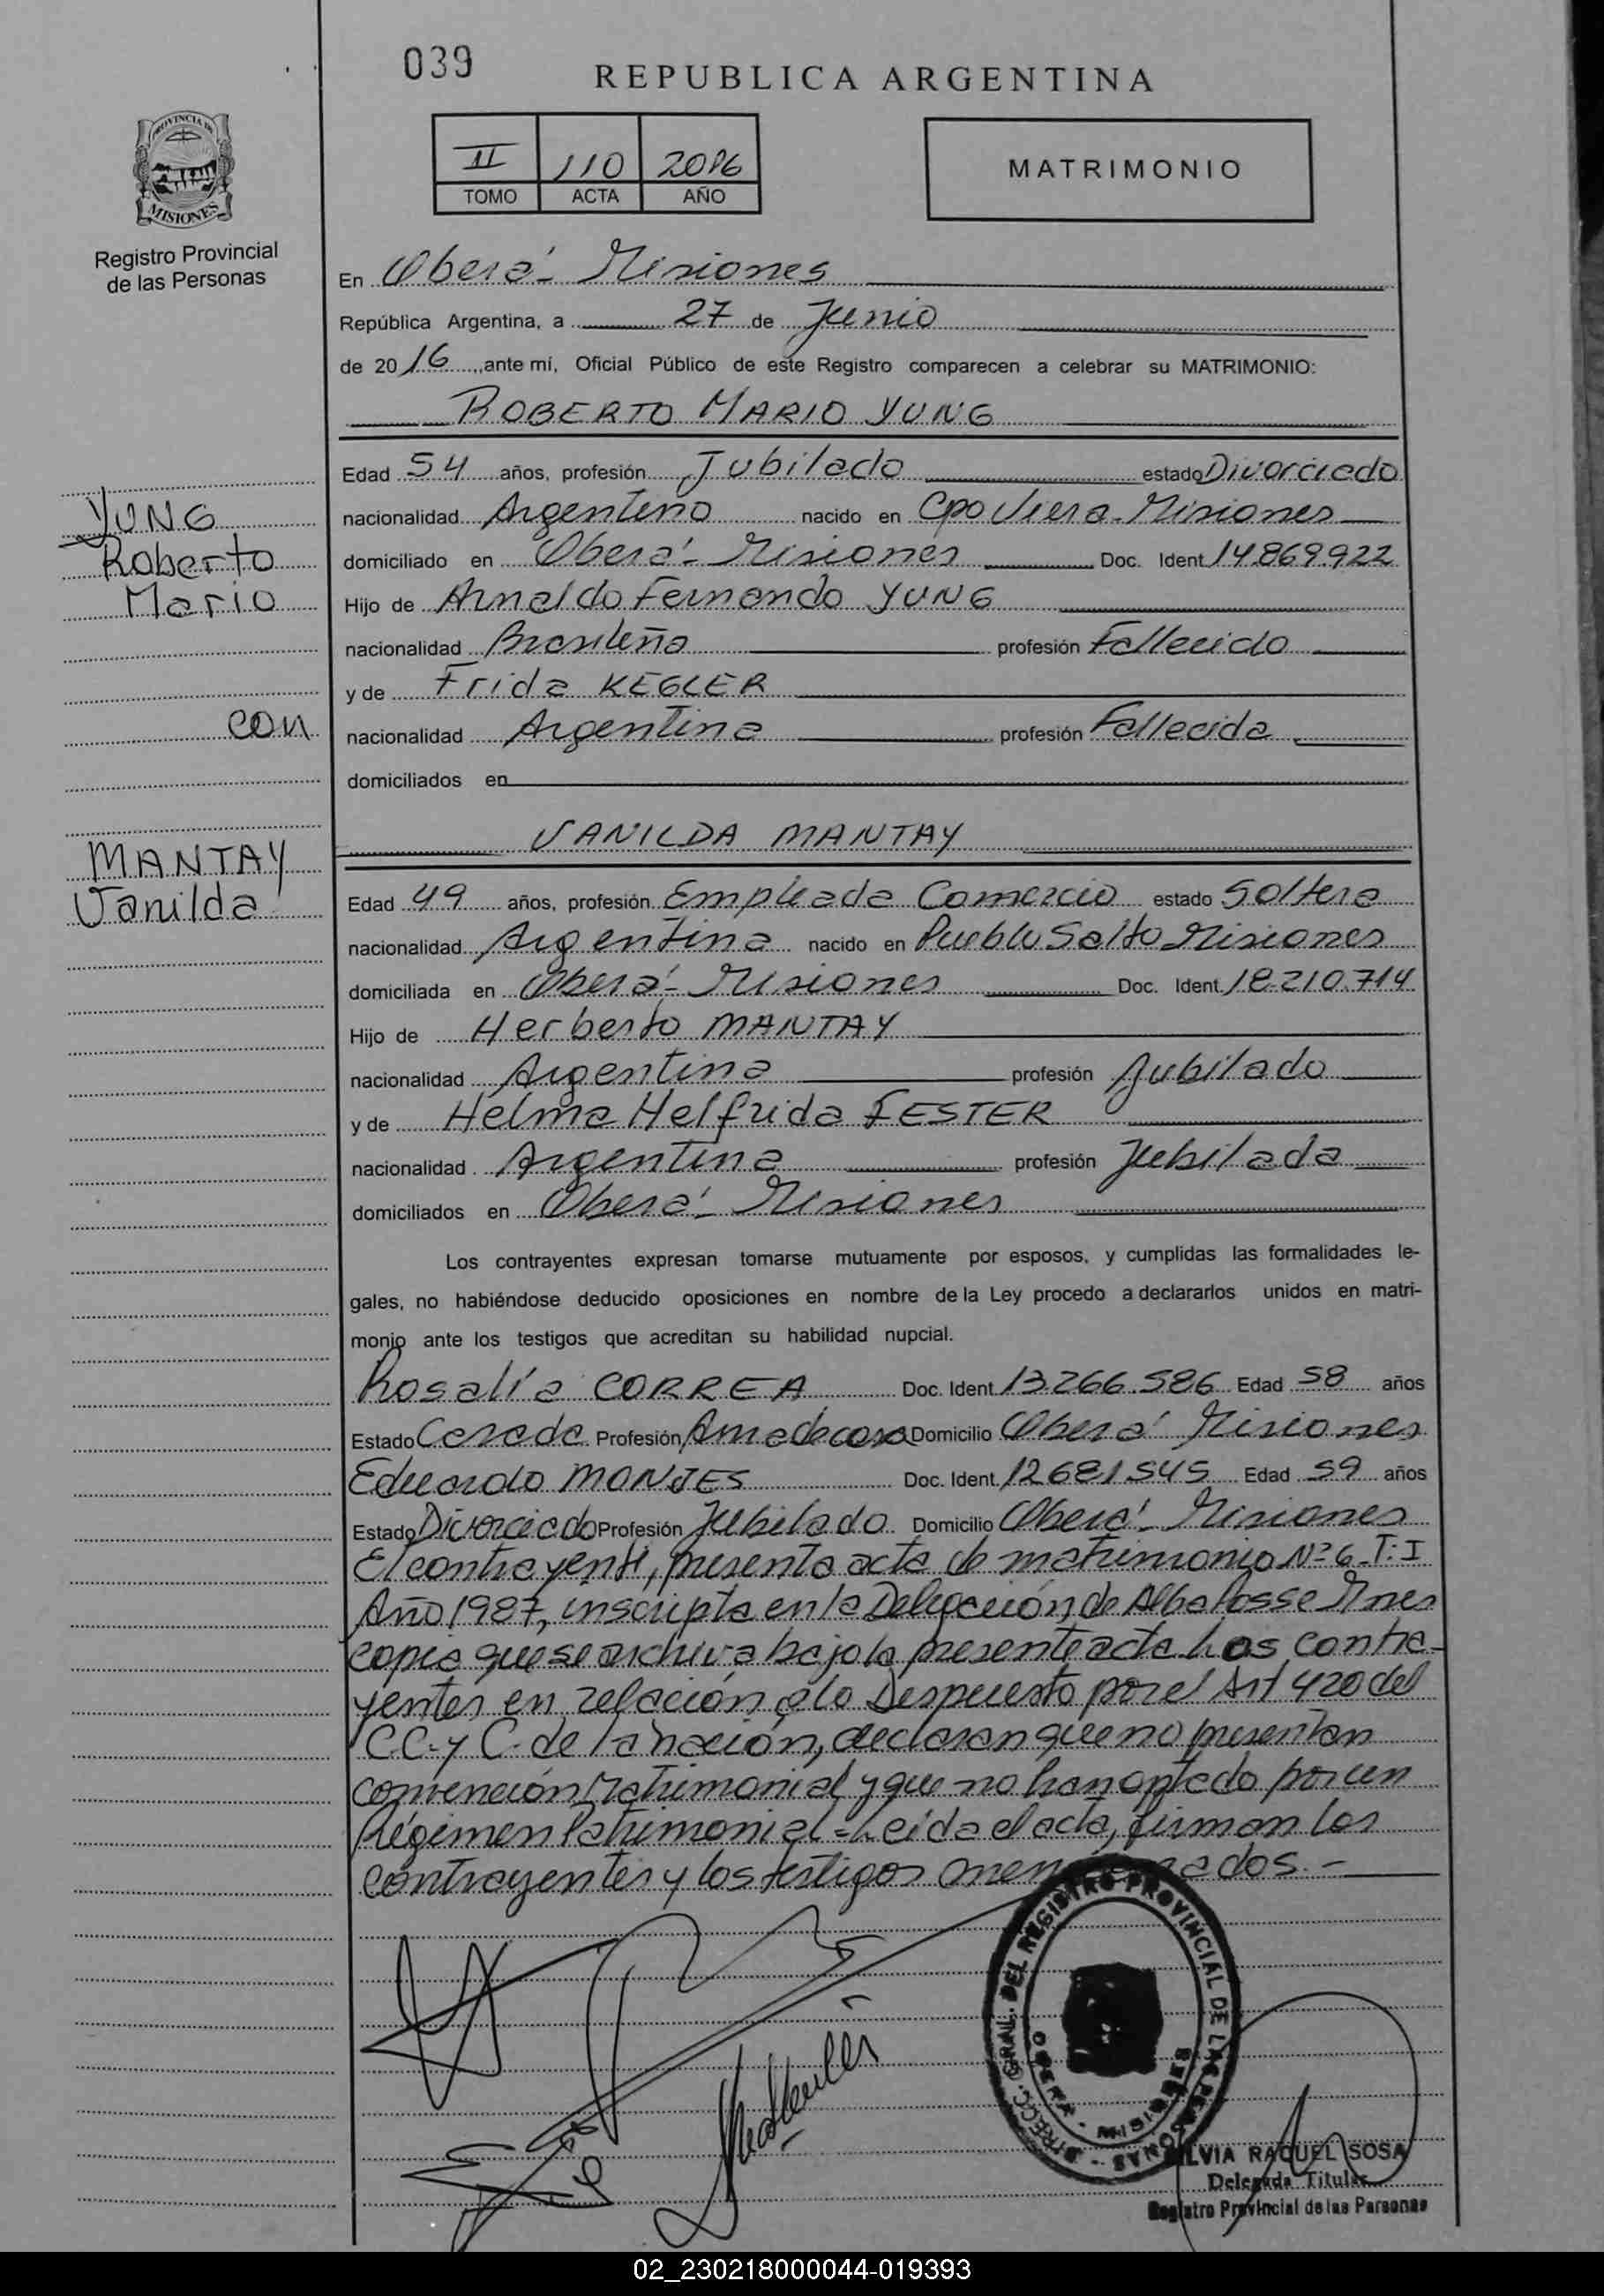 039
REPUBLICA ARGENTINA
II 110 2016
TOMO ACTA AÑO
MATRIMONIO
PROVINCIA DE
MISIONES
Registro Provincial
de las Personas
En Oberá - Misiones
República Argentina, a 27 de Junio
de 2016, ante mí, Oficial Público de este Registro comparecen a celebrar su MATRIMONIO:
ROBERTO MARIO YUNG
Edad 54 años, profesión Jubilado estado Divorciado
nacionalidad Argentino nacido en Cpo Viera - Misiones
domiciliado en Oberá - Misiones Doc. Ident 14.869.922
Hijo de Arnaldo Fernando YUNG
nacionalidad Brasileña profesión Fallecido
y de Frida KEGLER
nacionalidad Argentina profesión Fallecida
domiciliados en
YUNG
Roberto
Mario
con
MANTAY
Vanilda
VANILDA MANTAY
Edad 49 años, profesión Empleada Comercio estado Soltera
nacionalidad Argentina nacido en Pueblo Salto Misiones
domiciliada en Oberá - Misiones Doc. Ident. 18.210.714
Hijo de Herberto MANTAY
nacionalidad Argentina profesión Jubilado
y de Helma Helfrida FESTER
nacionalidad Argentina profesión Jubilada
domiciliados en Oberá - Misiones
Los contrayentes expresan tomarse mutuamente por esposos, y cumplidas las formalidades le-
gales, no habiéndose deducido oposiciones en nombre de la Ley procedo a declararlos unidos en matri-
monio ante los testigos que acreditan su habilidad nupcial.
Rosalía CORREA Doc. Ident 13.266.586 Edad 58 años
Estado Casada Profesión Ama de casa Domicilio Oberá Misiones
Eduardo MONJES Doc. Ident. 12681545 Edad 59 años
Estado Divorciado Profesión Jubilado Domicilio Oberá - Misiones
El contrayente, presenta acta de matrimonio Nº 6 - T: I
Año 1987, inscripta en la Delegación de Alba Posse Mnes
copia que se archiva bajo la presente acta Los contra-
yentes en relación a lo Despuesto por el Art 420 del
C.C. y C. de la nación, declaran que no presentan
convención matrimonial y que no han optado por un
Régimen Patrimonial = Leida el acta, firman los
contrayentes y los testigos mencionados. -
DIRECC. GRAL. DEL REGISTRO PROVINCIAL DE LAS PERSONAS
OBERA - MISIONES
SILVIA RAQUEL SOSA
Delegada Titular
Registro Provincial de las Personas
02_230218000044-019393